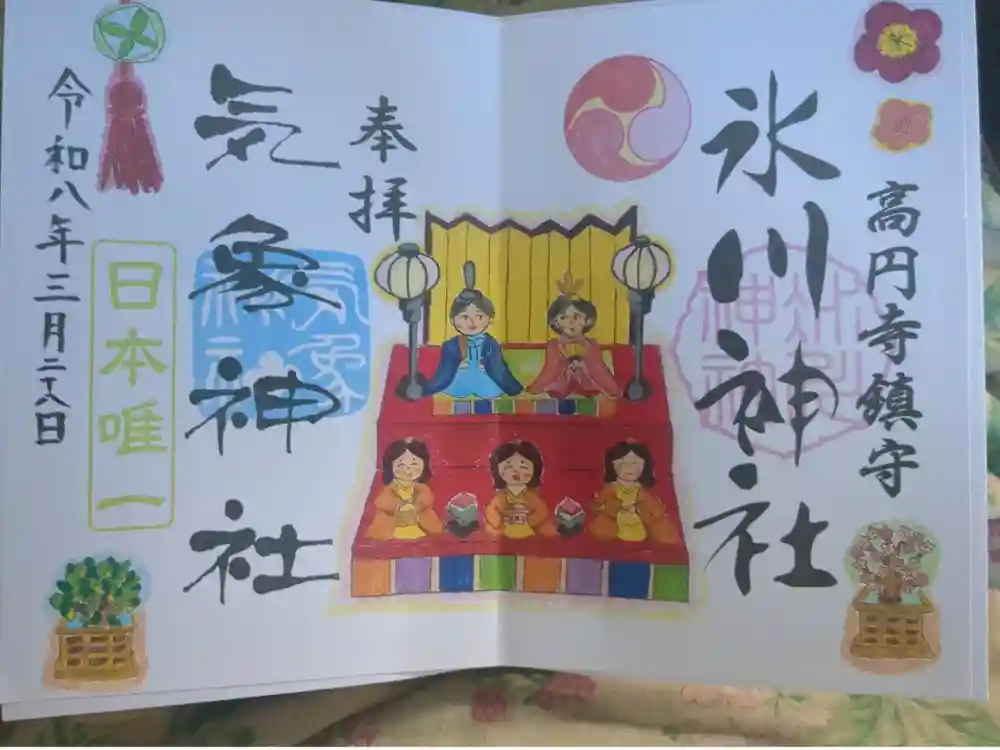 高円寺鎮守
氷川神社
奉拝
気象神社
気象神社
日本唯一
令和八年三月二十八日